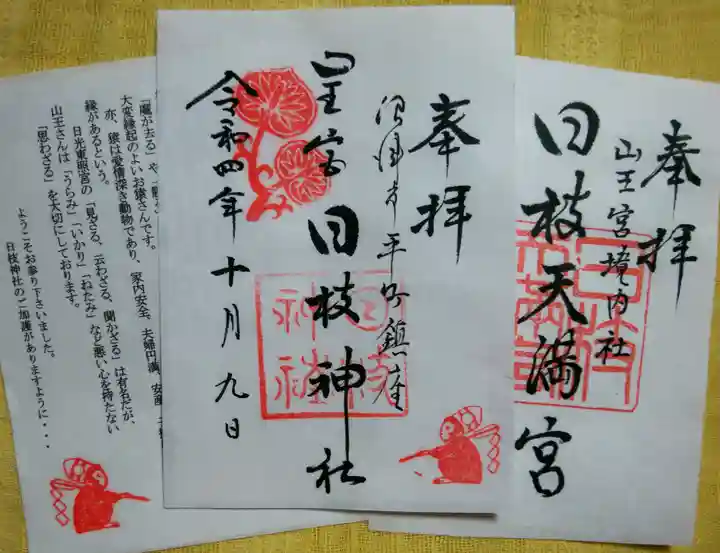 奉拝
山王宮境内社
日枝天満宮
奉拝
沼津市平町鎮座
山王宮 日枝神社
日枝神社
令和四年十月九日
「魔が去る」や「
大変縁起のよいお猿さんです。
亦、猿は愛情深き動物であり、家内安全、夫婦円満、安産、
縁があるという。
日光東照宮の「見ざる、云わざる、聞かざる」は有名だが、
山王さんは「うらみ」「いかり」「ねたみ」など悪い心を持たない
「思わざる」を大切にしております。
ようこそお参り下さいました。
日枝神社のご加護がありますように・・・